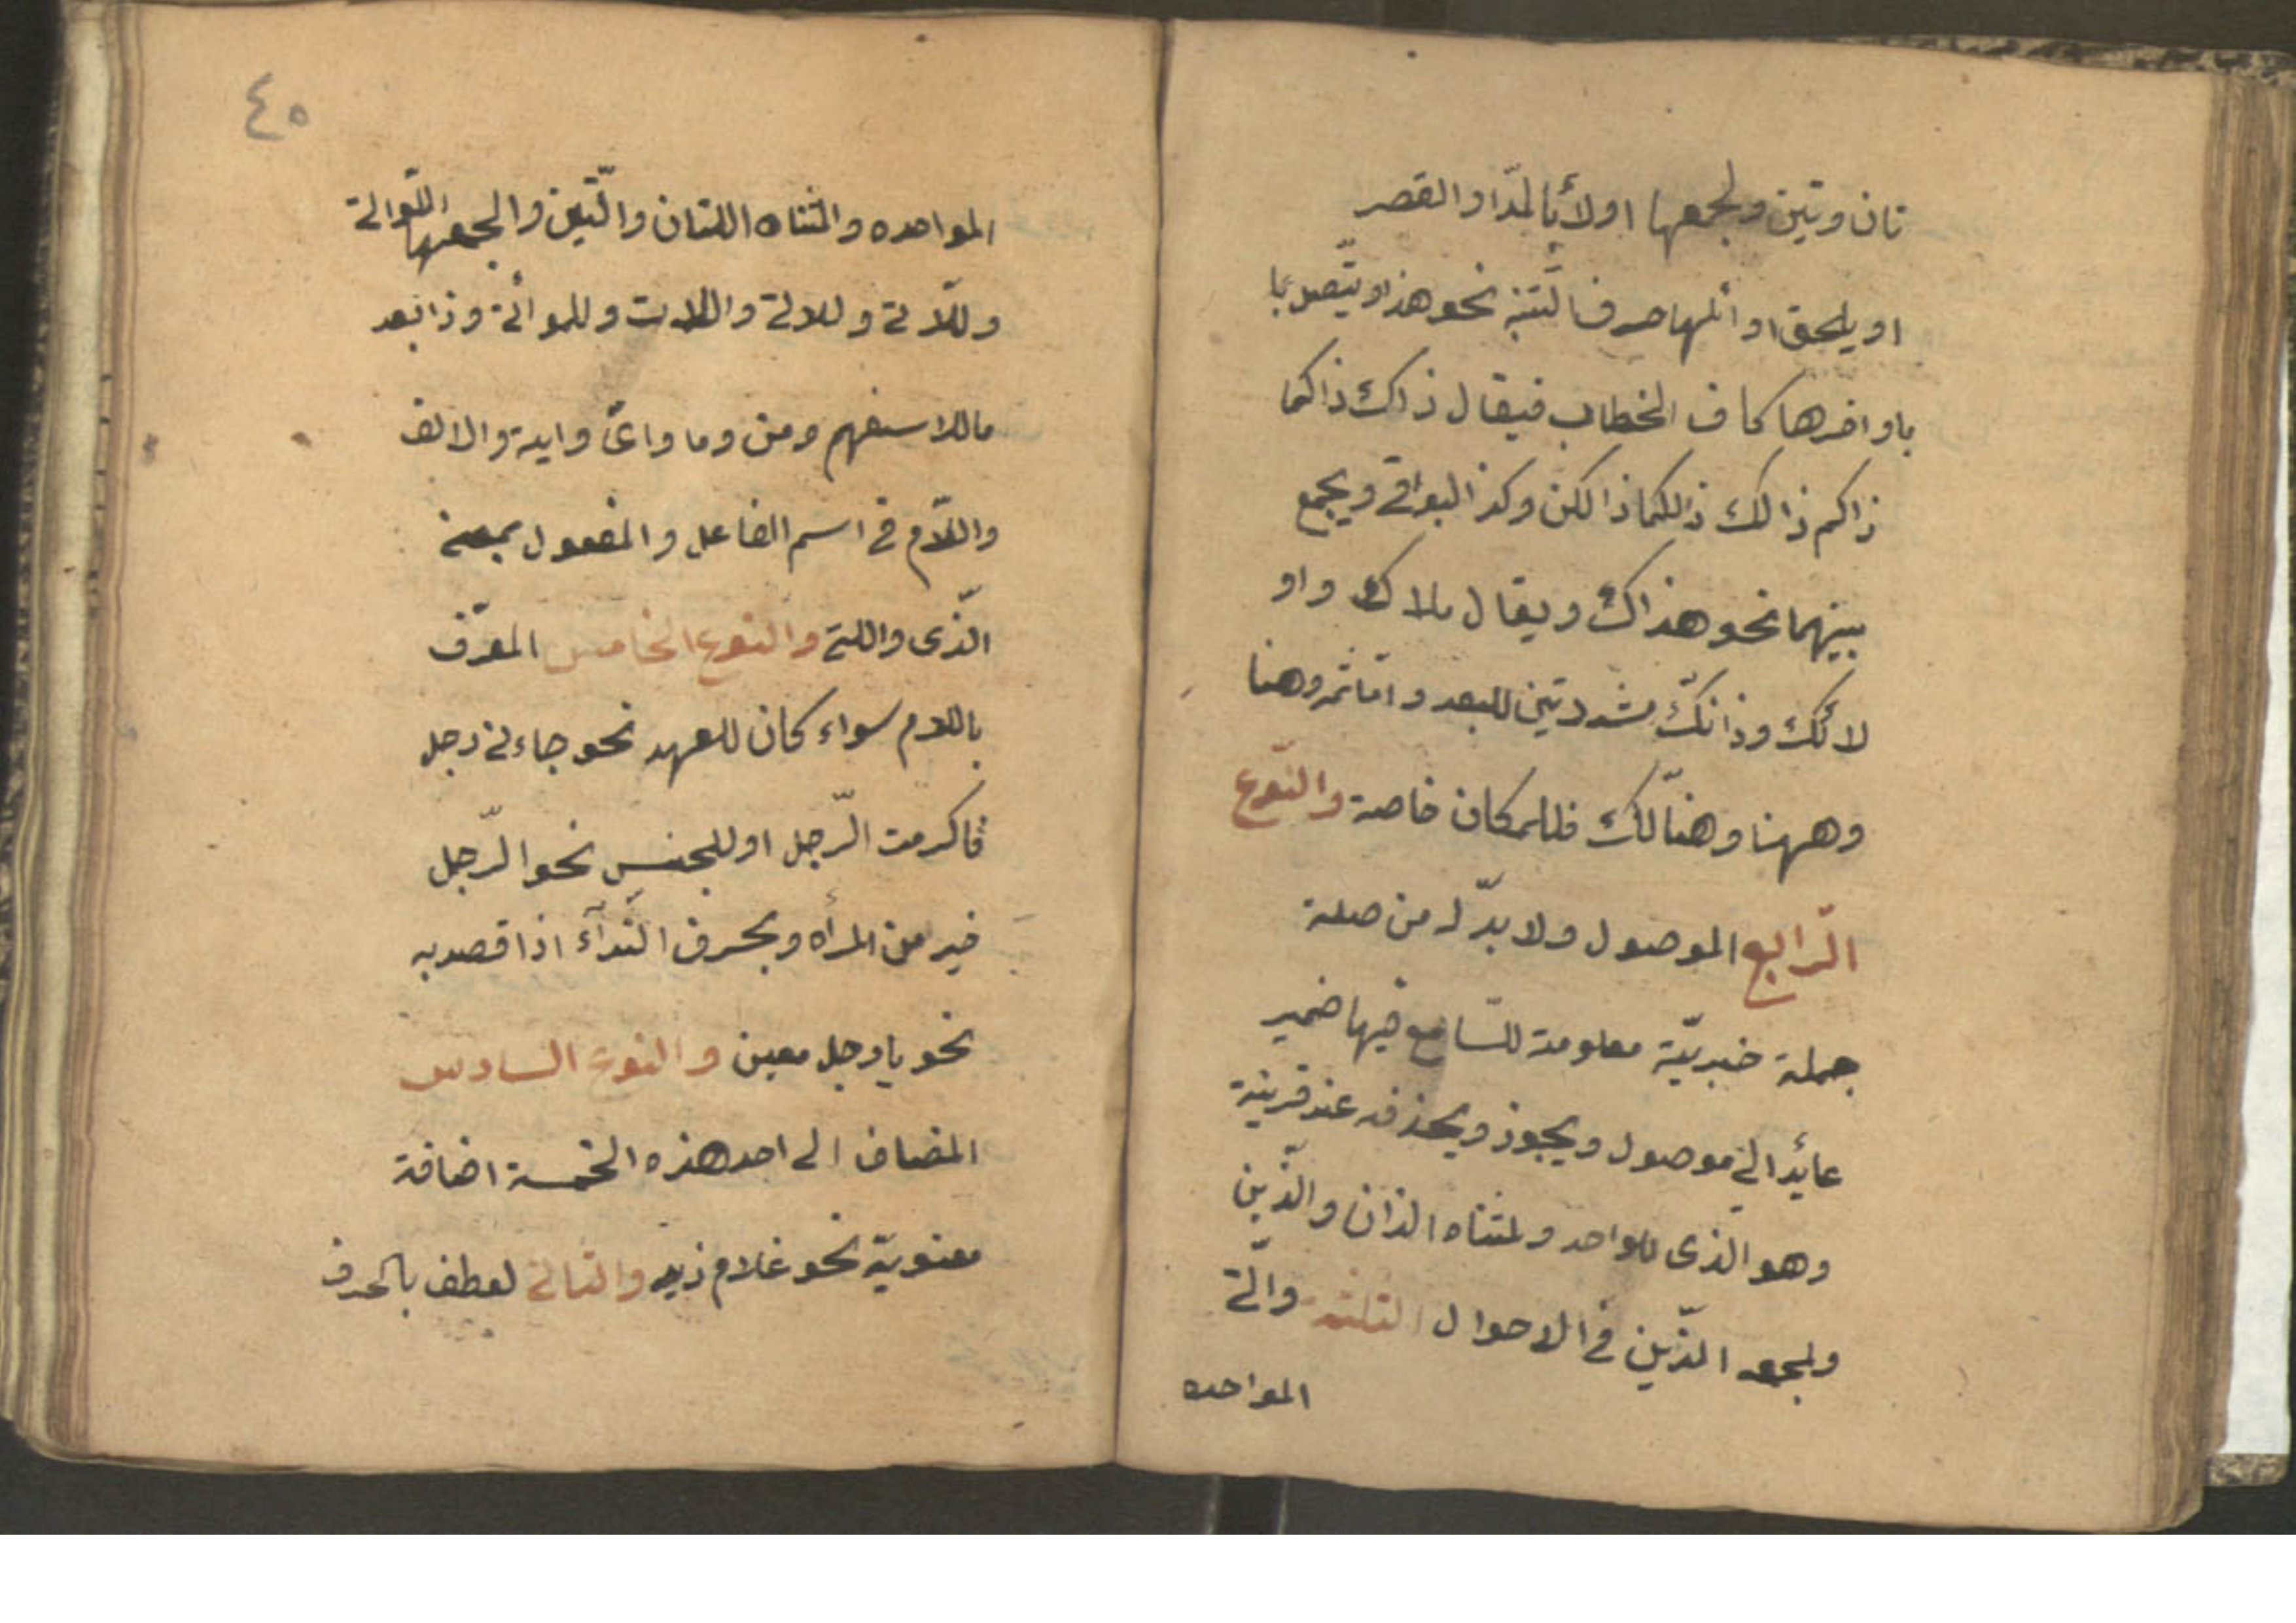 تان وتين ولجمعها اولاء بالمدّ او القصر
او يلحق اوائلها حرف التنبيه نحو هذا ويتّصل با
باواخرها كاف الخطاب فيقال ذاك ذاكما
ذاكم ذالك ذالكما ذالكن وكذا البواقي ويجمع
بينهما نحو هذاك ويقال ملاك واو
لائك وذانّك مشددتين للبعد وامّا ثمّ وهنا
وههنا وهنالك فللمكان خاصة والنّوع
الرّابع الموصول ولا بدّ له من صلة
جملة خبريّة معلومة للسّامع فيها ضمير
عائد الى موصول ويجوز ويحذفه عند قرينة
وهو الذّى للواحد ولمثناه الذان والذّين
ولجمعه الذّين فى الاحوال الثلثة والّتى
المواحده
٤٥
المواحده والمثناه اللتان والّتين والجمعها اللّواتى
وللّاتى وللائى واللات وللوائى وذا بعد
ما للاستفهم ومن وما واىّ واية والالف
واللّام فى اسم الفاعل والمفعول بمعنى
الّذى واللتى والنوع الخامس المعرّف
باللام سواء كان للعهد نحو جاءنى رجل
فاكرمت الرّجل او للجنس نحو الرّجل
خير من المرأه وبحرف النّدآء اذا قصد به
نحو يا رجل معين والنوع السادس
المضاف الى احد هذه الخمسة اضافة
معنويّة نحو غلام زيد والثالث لعطف بالحرف